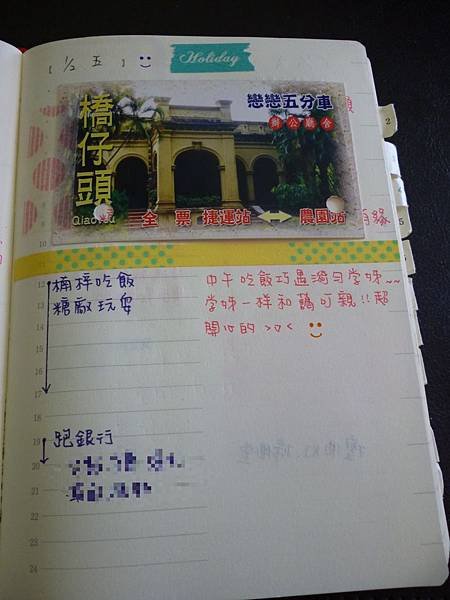 [ 1/2 五 ]
Holiday
戀戀五分車
辦公廳舍
橋仔頭
全票 捷運站 農園站
楠梓吃飯
糖廠玩耍
中午吃飯巧遇滿勻學姊~~
學姊一樣和藹可親!!超
開心的 >v<
跑銀行
10
11
12
13
14
15
16
17
18
19
20
21
22
23
24
2
5